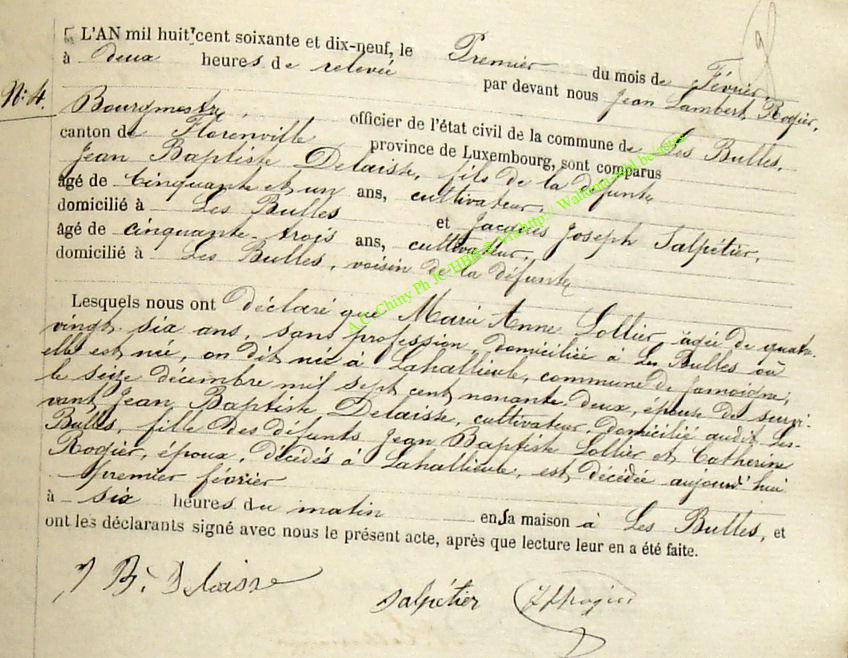 L'AN mil huit cent soixante et dix-neuf, le Premier du mois de Février
à deux heures de relevée par devant nous Jean Lambert Rogier,
N: 4.
Bourgmestre, officier de l'état civil de la commune de Les Bulles,
canton de Florenville province de Luxembourg, sont comparus
Jean Baptiste Delaisse, fils de la défunte
âgé de Cinquante et un ans, cultivateur,
domicilié à Les Bulles et Jacques Joseph Salpétier,
âgé de cinquante-trois ans, cultivateur,
domicilié à Les Bulles, voisin de la défunte
Lesquels nous ont déclaré que Marie Anne Lollier, âgée de quatre
vingt-six ans, sans profession, domiciliée à Les Bulles où
elle est née, on dit née à Lahallieule, commune de Jamoigne,
le seize décembre mil sept cent nonante-deux, épouse du survi-
vant Jean Baptiste Delaisse, cultivateur, domicilié audit Les-
Bulles, fille des défunts Jean Baptiste Lollier et Catherine
Rogier, époux, décédés à Lahallieule, est décédée aujourd'hui
premier février
à six heures du matin en sa maison à Les Bulles, et
ont les déclarants signé avec nous le présent acte, après que lecture leur en a été faite.
J B. Delaisse
Salpétier JLRogier